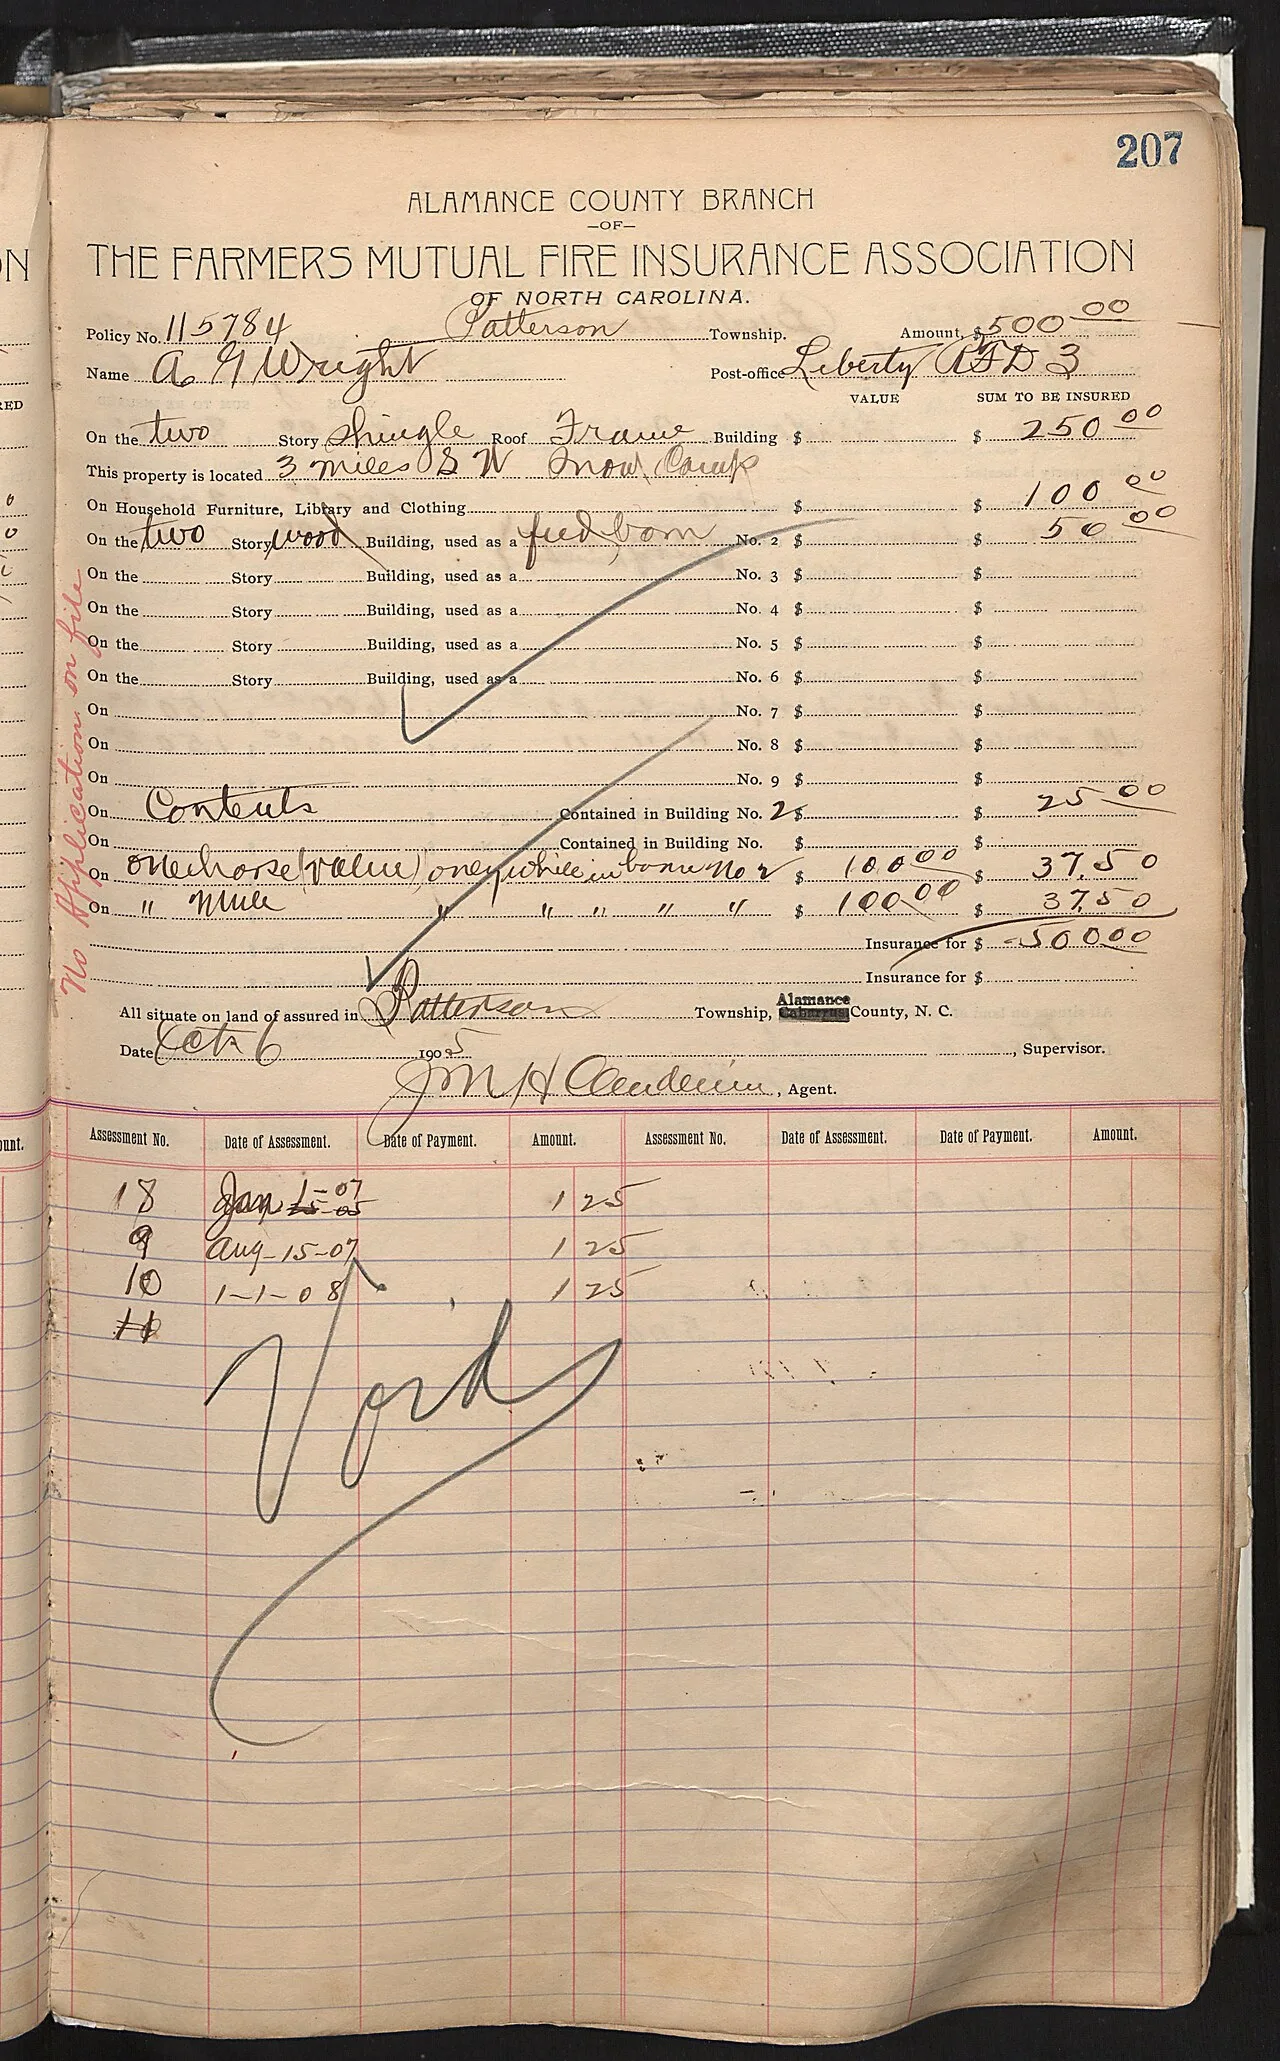 207
ALAMANCE COUNTY BRANCH
—OF—
THE FARMERS MUTUAL FIRE INSURANCE ASSOCIATION
OF NORTH CAROLINA.
Policy No. 115784 Patterson Township. Amount, $500 00
Name A G Wright Post-office Liberty RFD 3
VALUE SUM TO BE INSURED
On the two Story Shingle Roof Frame Building $ $ 250 00
This property is located 3 miles S W Snow Camp
On Household Furniture, Library and Clothing $ $ 100 00
On the two Story wood Building, used as a feed barn No. 2 $ $ 50 00
On the Story Building, used as a No. 3 $ $
On the Story Building, used as a No. 4 $ $
On the Story Building, used as a No. 5 $ $
On the Story Building, used as a No. 6 $ $
On No. 7 $ $
On No. 8 $ $
On No. 9 $ $
On Contents Contained in Building No. 2 $ $ 25 00
On Contained in Building No. $ $
On one horse (value) only while in barn No 2 $ 100 00 $ 37.50
On " Mule " " " " " $ 100 00 $ 37.50
Insurance for $ 500 00
Insurance for $
All situate on land of assured in Patterson Township, Alamance County, N. C.
Date Oct 6 1905 , Supervisor.
Jno H Clendenin, Agent.
No Application on file
Assessment No. Date of Assessment. Date of Payment. Amount. Assessment No. Date of Assessment. Date of Payment. Amount.
18 Jan 1-07 1 25
25-05
9 Aug-15-07 1 25
10 1-1-08 1 25
11
Void